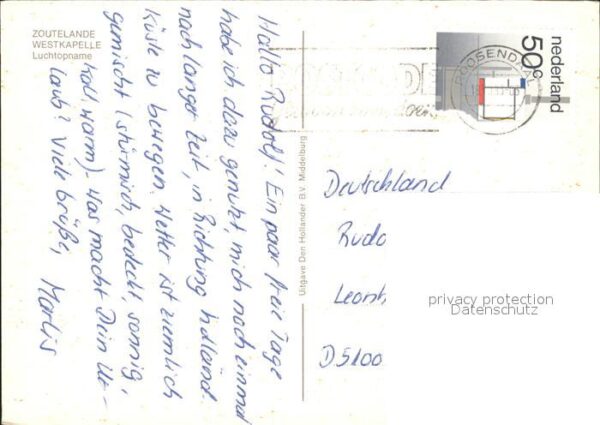 ZOUTELANDE
WESTKAPELLE
Luchtopname
Hallo Rudolf! Ein paar freie Tage
habe ich dazu genutzt, mich noch einmal
nach langer Zeit, in Richtung holland.
Küste zu bewegen. Wetter ist ziemlich
gemischt (stürmisch, bedeckt, sonnig,
kalt, warm). Was macht Dein Ur-
laub? Viele Grüße,
Marlis
Uitgave Den Hollander B.V. Middelburg
nederland
50c
ROOSENDAAL
Deutschland
Rudo
Leonh
D 5100
privacy protection
Datenschutz